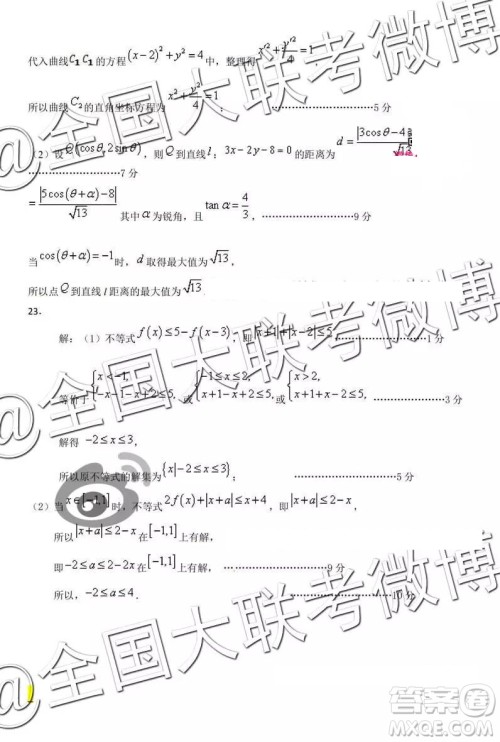 代入曲线C₁ C₁的方程(x-2)²+y²=4中，整理得x'²+y'²/4=1
所以曲线C₂的直角坐标方程为 x²+y²/4=1 ……5分
（2）设Q(cosθ,2sinθ)，则Q到直线l：3x-2y-8=0的距离为 d=|3cosθ-4
/√13，
……7分
=|5cos(θ+α)-8|/√13 其中α为锐角，且 tanα=4/3，……9分
当cos(θ+α)=-1时，d取得最大值为√13，
所以点Q到直线l距离的最大值为√13，
23.
解：（1）不等式f(x)≤5-f(x-3)，即|x+1|+|x-2|≤5，……1分
等价于{x<-1, -x-1-x+2≤5 或{-1≤x≤2, x+1-x+2≤5 或{x>2 x+1+x-2≤5 ……3分
解得 -2≤x≤3，
所以原不等式的解集为{x|-2≤x≤3} ；……5分
（2）当x∈[-1,1]时，不等式2f(x)+|x+a|≤x+4，即|x+a|≤2-x，
所以|x+a|≤2-x在[-1,1]上有解，
即-2≤a≤2-2x在[-1,1]上有解，……9分
所以，-2≤a≤4．……10分
@全国大联考微博
@全国大联考微博
@全国大联考微博
答案圈
MXQE.COM